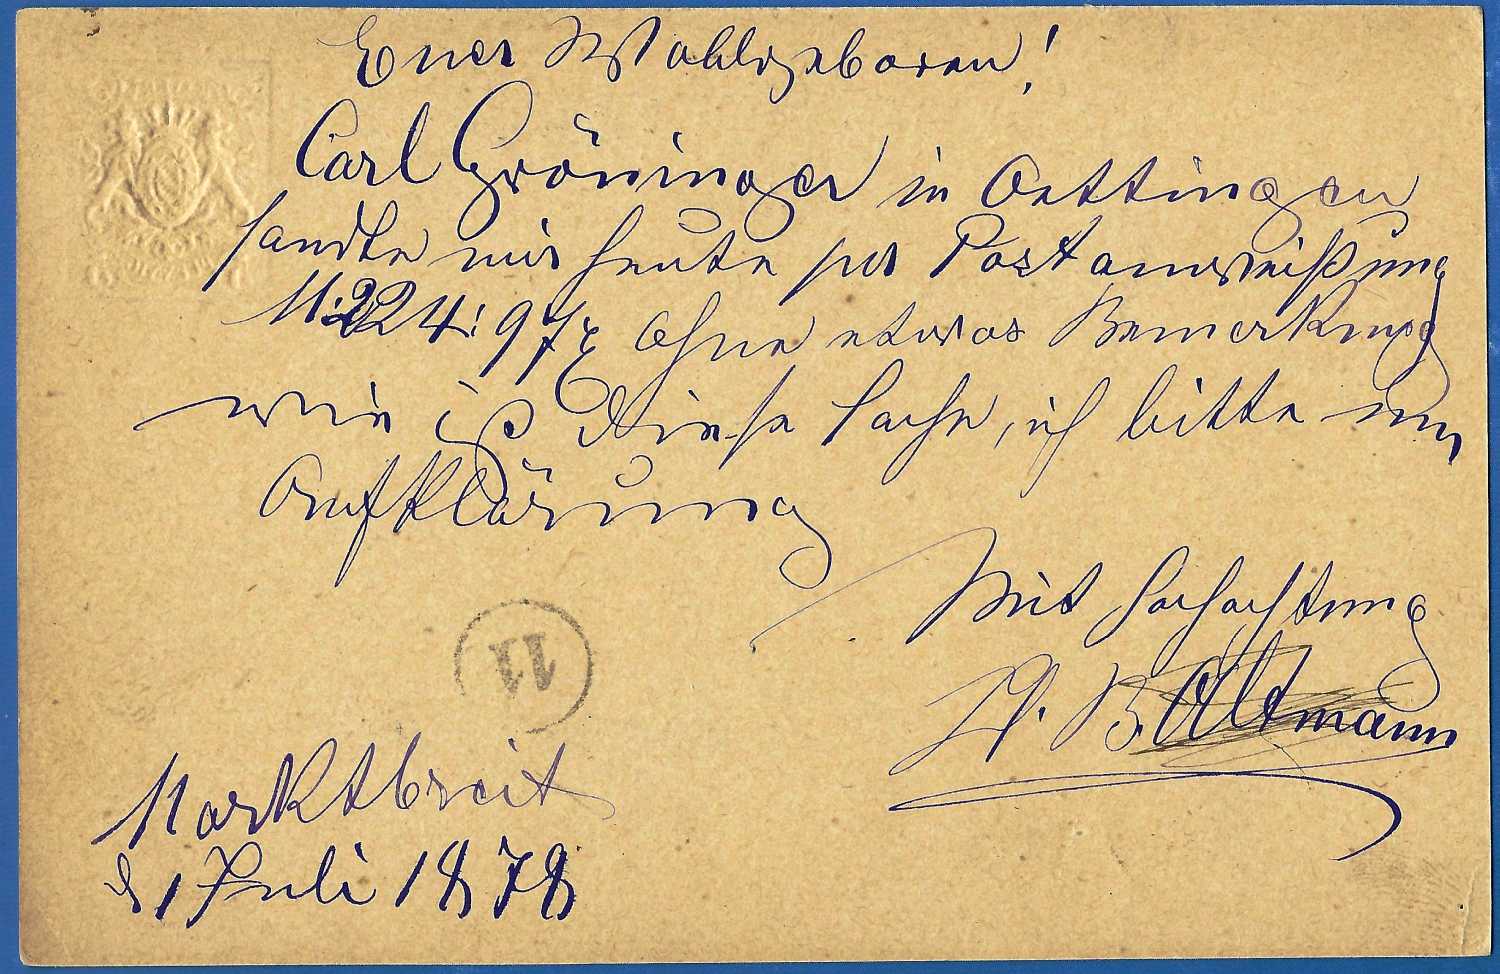 Euer Wohlgeboren!
Carl Gröninger in Oettingen
sandte mir heute per Postanweißung
M. 224.97 ohne etwas Bemerkung
wie ist diese Sache, ich bitte um
Aufklärung
Mit Hochachtung
B. Altmann
11
Marktbreit
d 1 Juli 1878